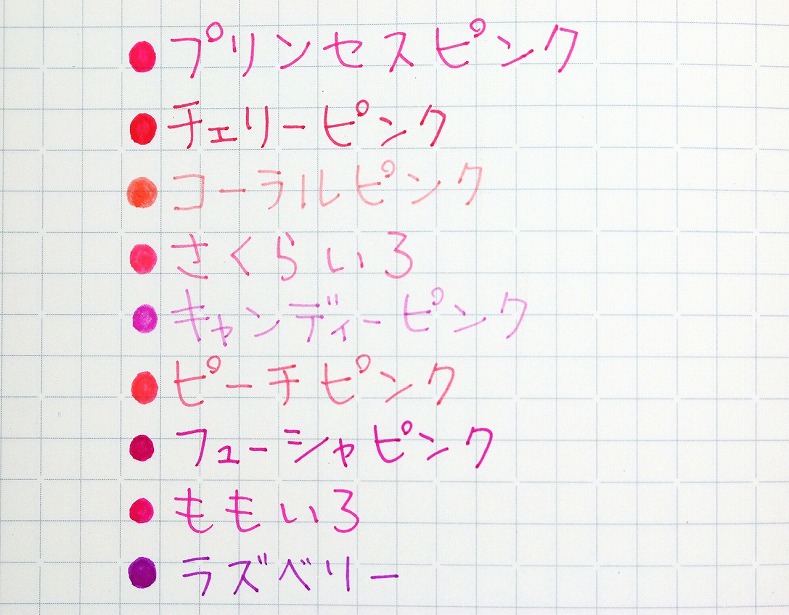 プリンセスピンク
チェリーピンク
コーラルピンク
さくらいろ
キャンディーピンク
ピーチピンク
フューシャピンク
ももいろ
ラズベリー